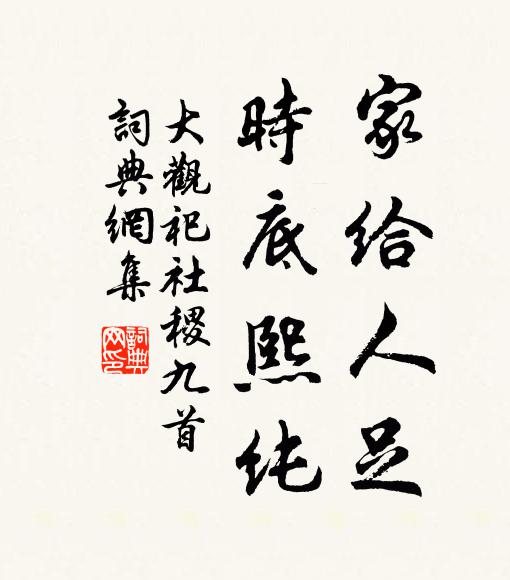 家給人足
時底熙純
大觀祀社稷九首
詞典網集
詞典網印